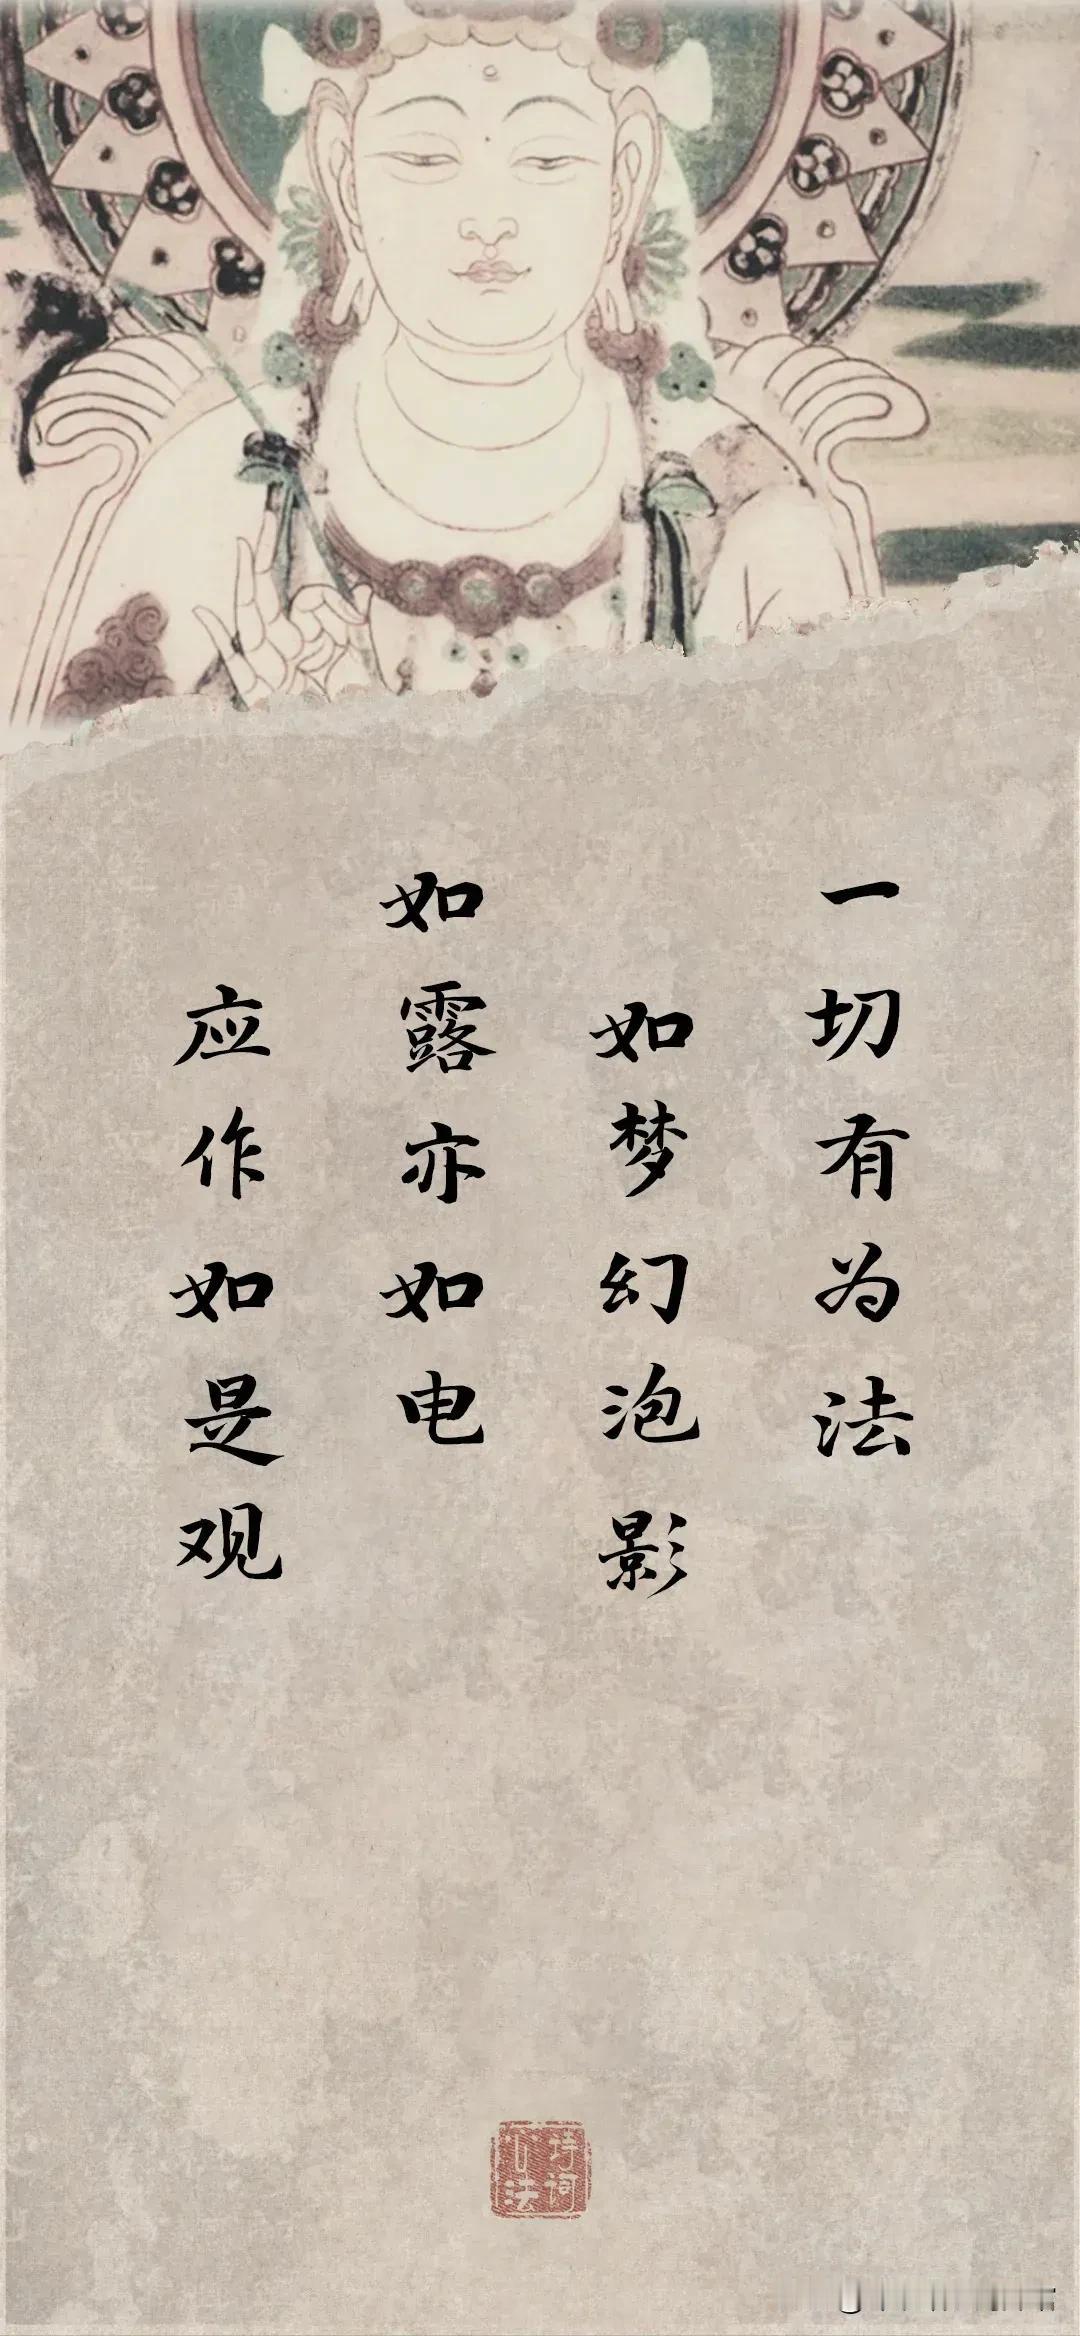 一切有为法
如梦幻泡影
如露亦如电
应作如是观
诗词
心法